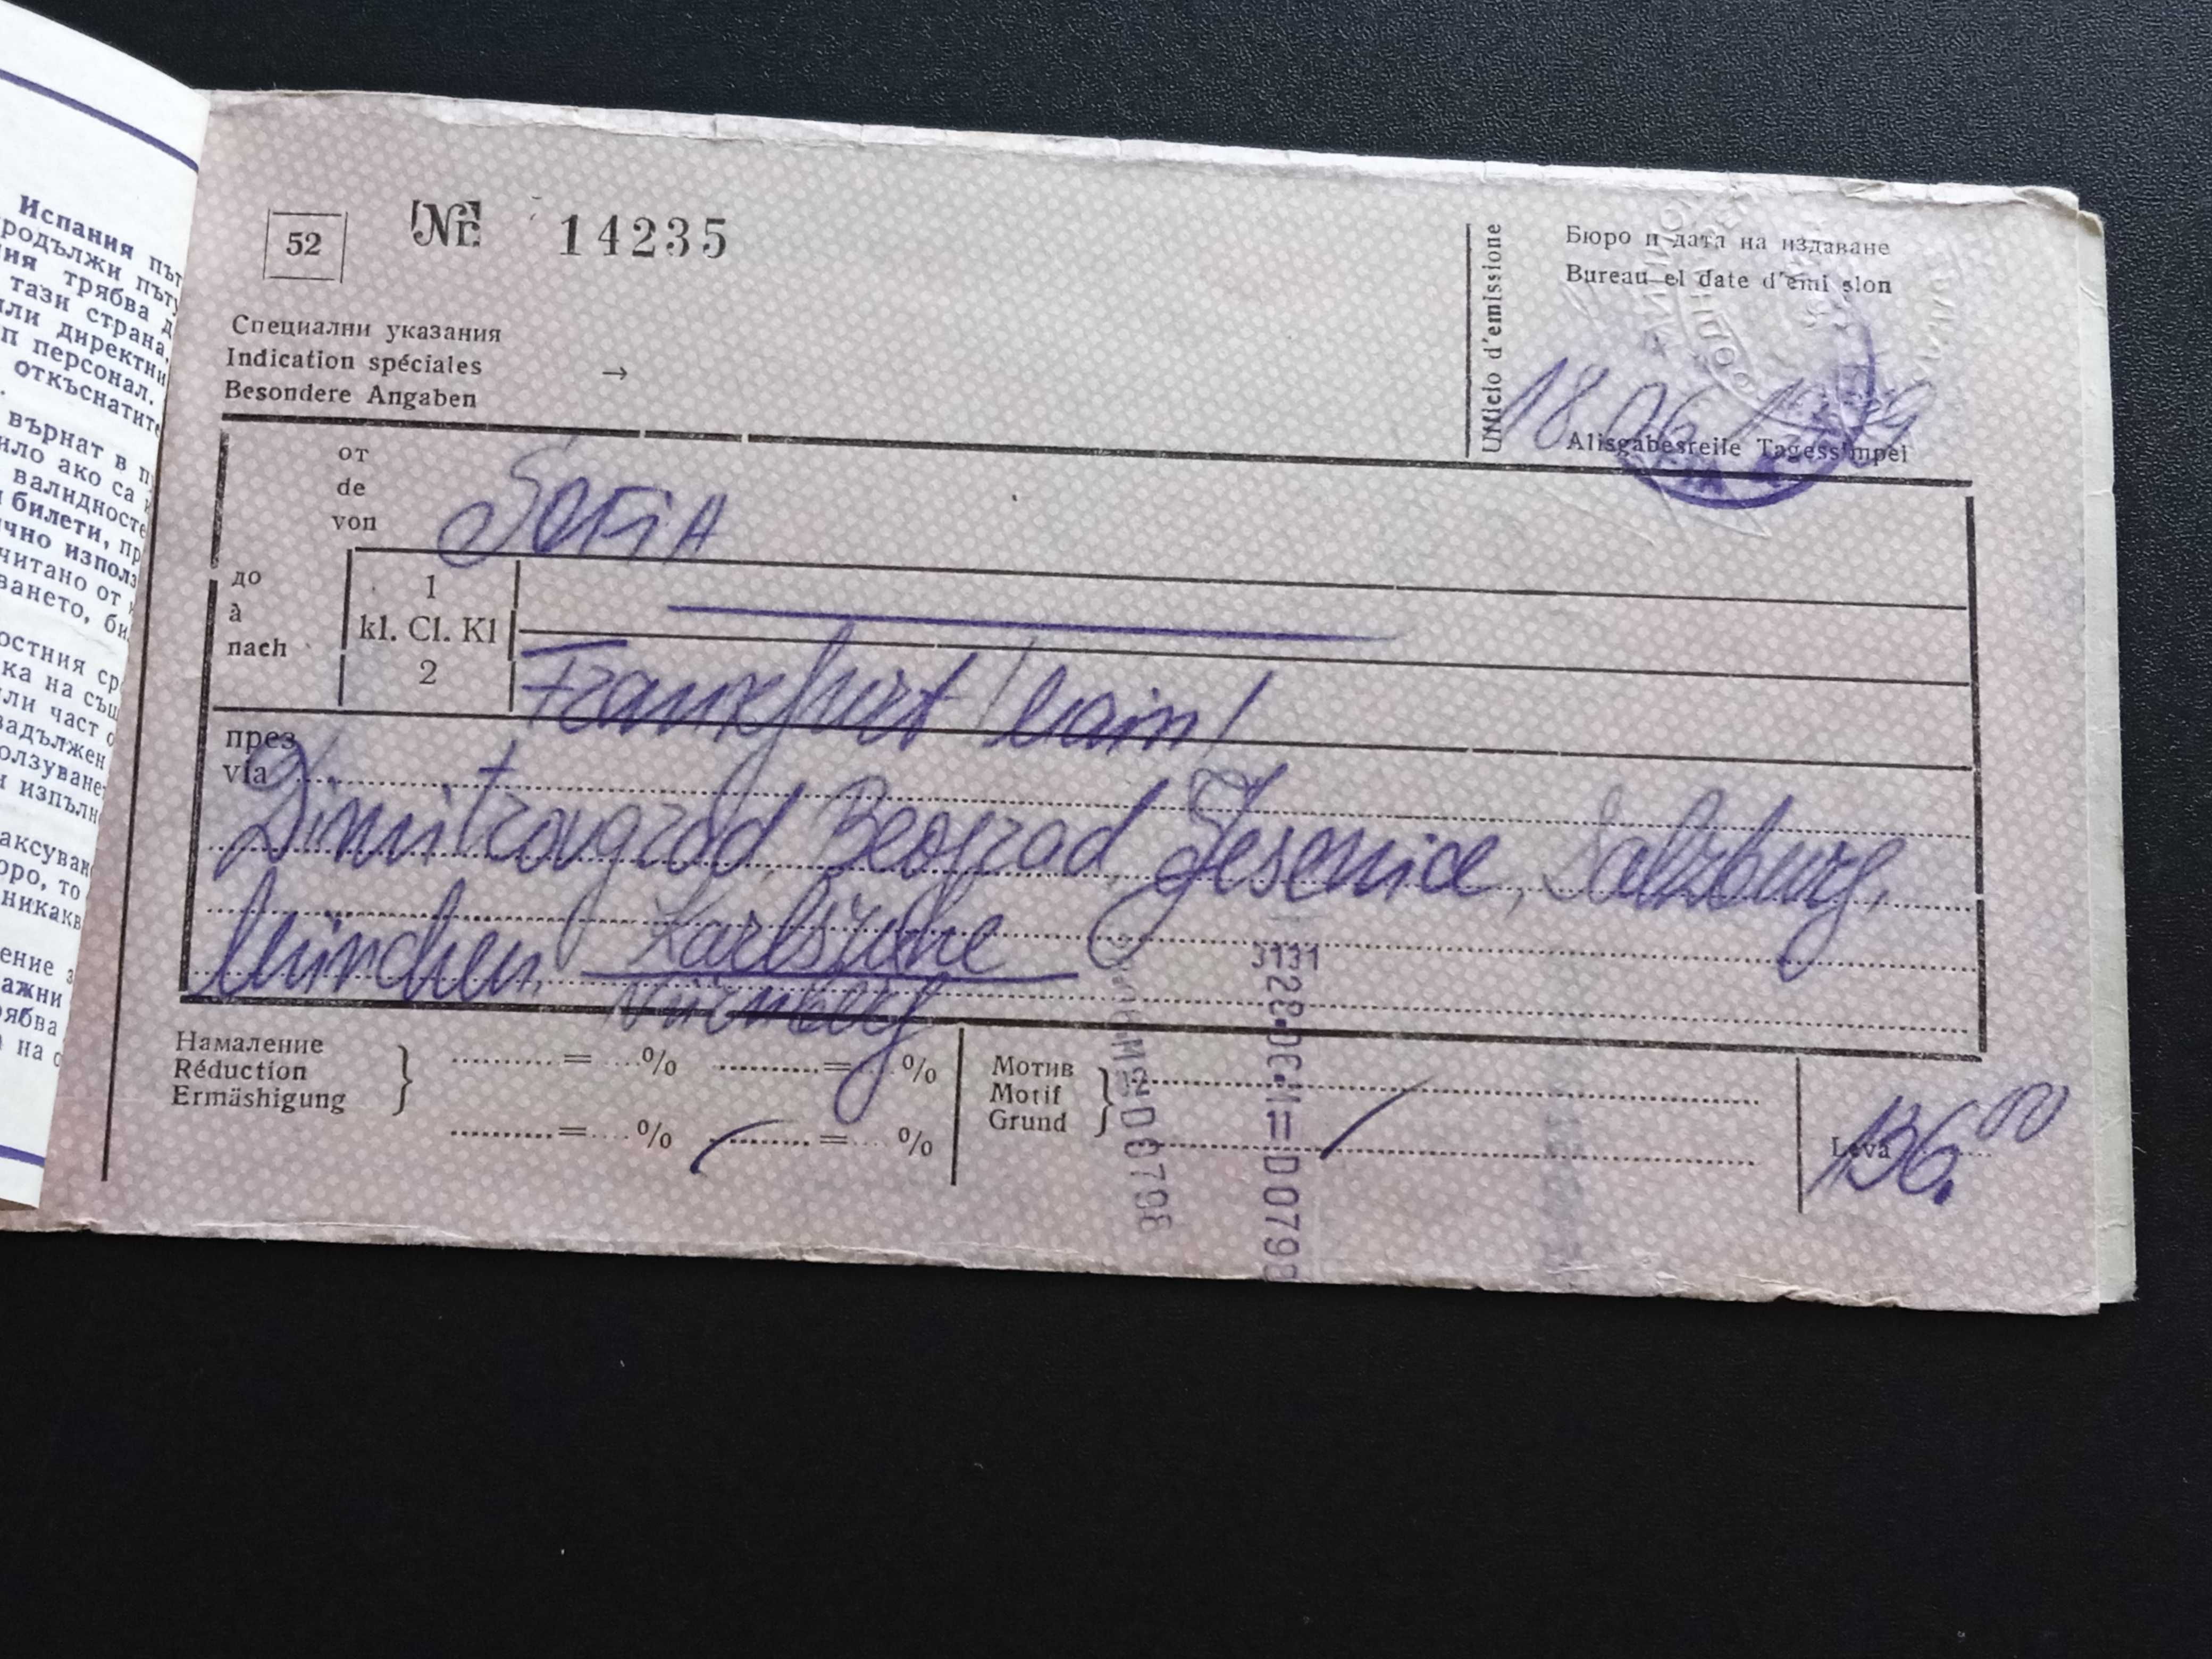 Испания път
родължи пъту
ия трябва д
тази страна,
или директни
п персонал.
откъснатите
върнат в п
ило ако са
валидносте
билети, пр
чно използ
читано от
ването, би
остния ср
ка на същ
ли част о
задължен
олзуване
и изпълн
аксуван
оро, то
никакв
ение з
ажни
рябва
на о
52
Nr. 14235
Специални указания
Indication spéciales
Besondere Angaben
→
Ufficio d'emissione
Бюро и дата на издаване
Bureau el date d'emi slon
18.06.
Alisgabesreile Tagess'mpei
от
de
von
SOFIA
до
à
nach
1
kl. Cl. Kl
2
Frankfurt /Main/
през
via
Dimitrovgrad, Beograd, Jesenice, Salzburg,
München, Karlsruhe
Nürnberg
3131
28.06.11 D0798
D0798
Намаление
Réduction
Ermäshigung
= % = %
= % = %
Мотив
Motif
Grund
Leva
136.00